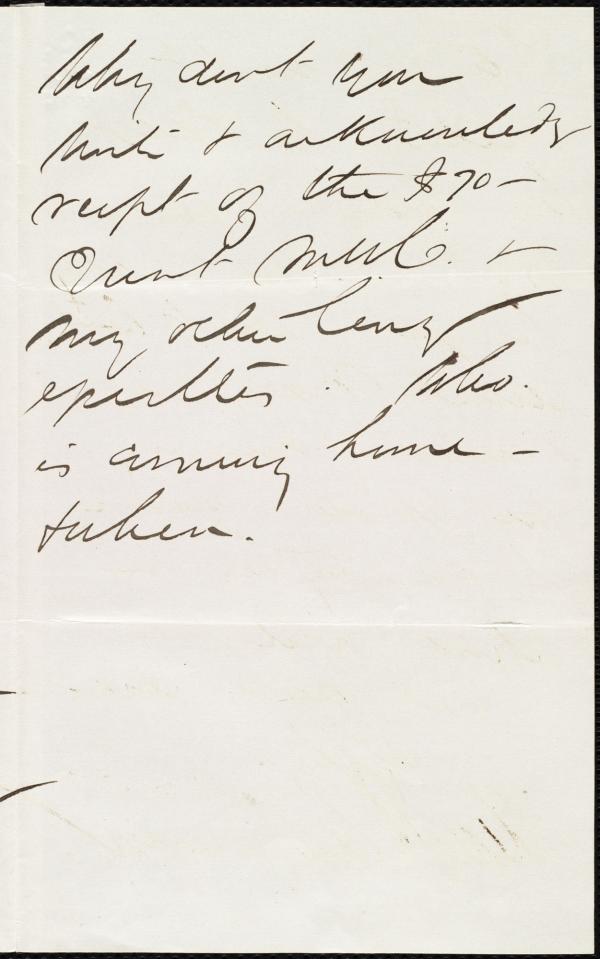 Why don't you
write & acknowledg
receipt of the $70 -
Quint &
my other lengy
epistles. Who.
is coming home -
& when.